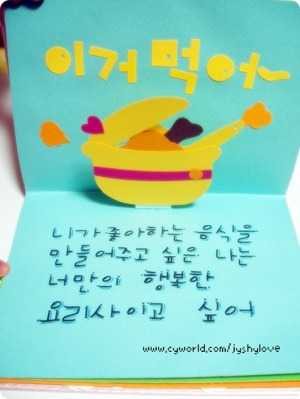 이거 먹어~
니가 좋아하는 음식을
만들어주고 싶은 나는
너만의 행복한
요리사이고 싶어
www.cyworld.com/jyshylove